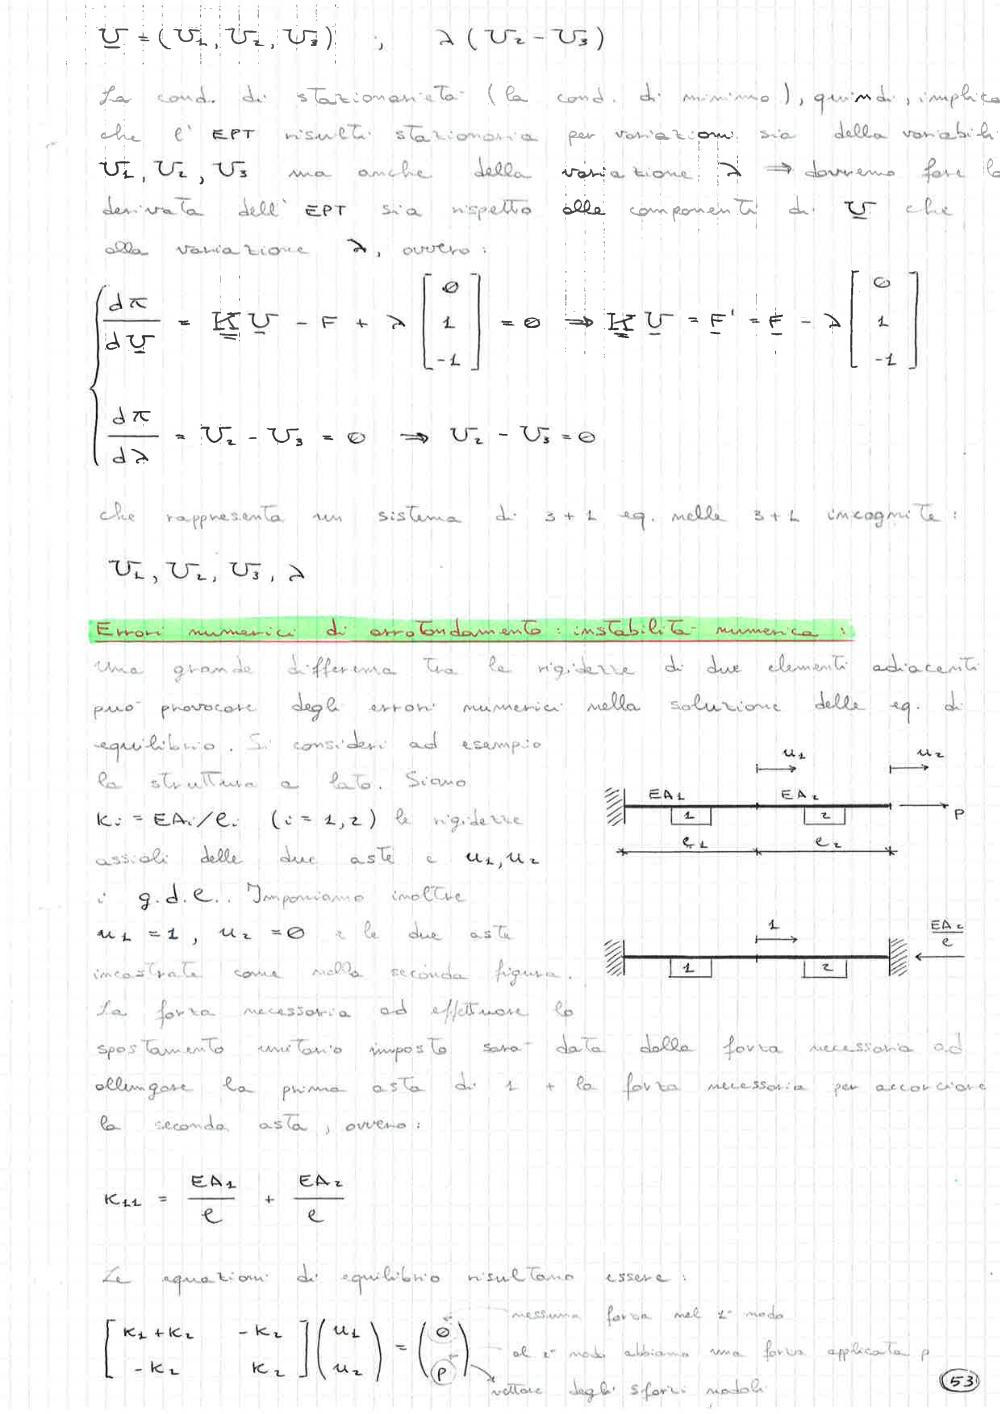 U = (U1, U2, U3) ; λ (U2 - U3)
La cond. di stazionarietà (la cond. di minimo), quindi, implica
che l' EPT risulti stazionaria per variazioni sia della variabili
U1, U2, U3 ma anche della variazione λ ⇒ dovremo fare la
derivata dell' EPT sia rispetto alle componenti di U che
alla variazione λ, ovvero:
dπ/dU = K U - F + λ [0 1 -1] = 0 ⇒ K U = F' = F - λ [0 1 -1]
dπ/dλ = U2 - U3 = 0 ⇒ U2 - U3 = 0
che rappresenta un sistema di 3+1 eq. nelle 3+1 incognite:
U1, U2, U3, λ
Errori numerici di arrotondamento: instabilità numerica:
Una grande differenza tra le rigidezze di due elementi adiacenti
può provocare degli errori numerici nella soluzione delle eq. di
equilibrio. Si consideri ad esempio
la struttura a lato. Siano
Ki = EAi/li (i = 1,2) le rigidezze
assiali delle due aste e u1, u2
i g.d.l.. Imponiamo inoltre
u1 = 1, u2 = 0 e le due aste
incastrate come nella seconda figura.
La forza necessaria ad effettuare lo
u1 u2
EA1 EA2
1 2 P
l1 l2
1 EA2/l
1 2
spostamento unitario imposto sarà data dalla forza necessaria ad
allungare la prima asta di 1 + la forza necessaria per accorciare
la seconda asta, ovvero:
K11 = EA1/l + EA2/l
Le equazioni di equilibrio risultano essere:
nessuna forza nel 1° nodo
[K1+K2 -K2] (u1) = (0)
[-K2 K2] (u2) (P)
al 2° nodo abbiamo una forza applicata P
vettore degli sforzi nodali
53